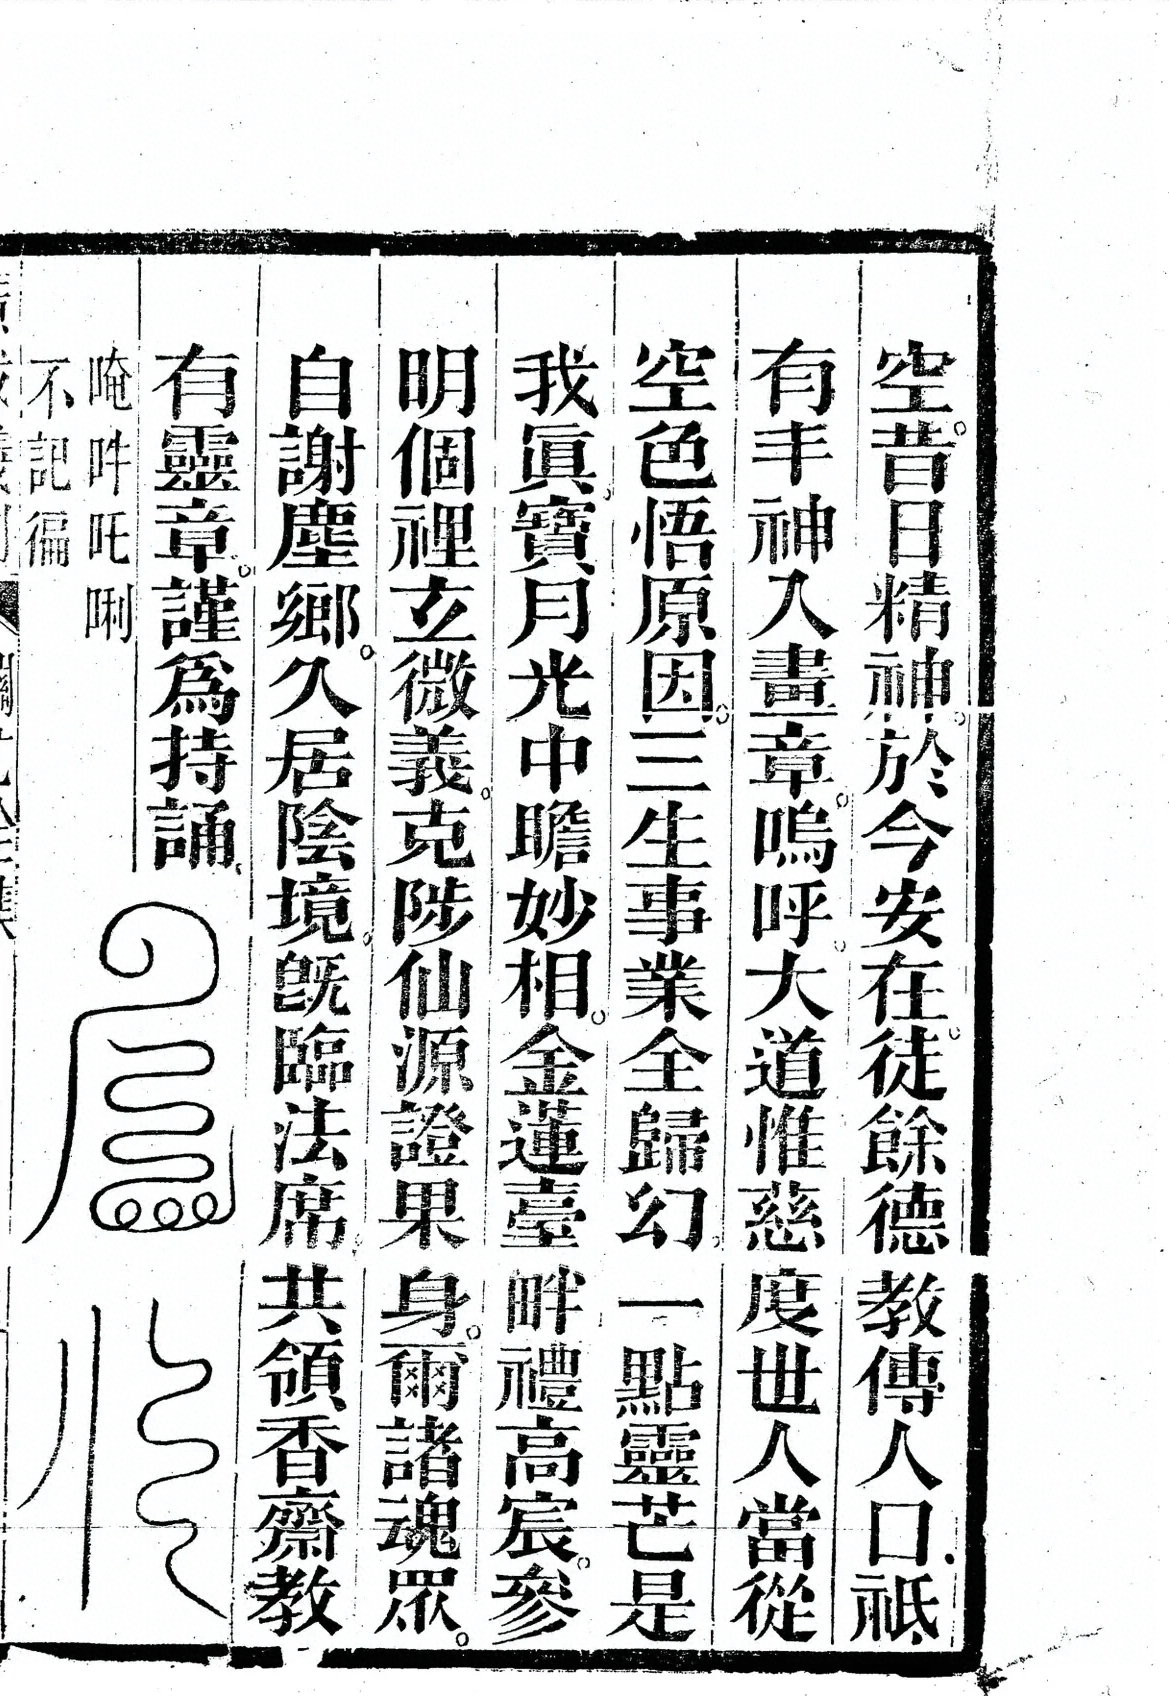 空昔日精神於今安在徒餘德教傳人口祗
有丰神入畫章嗚呼大道惟慈度世人當從
空色悟原因三生事業全歸幻一點靈芒是
我眞寶月光中瞻妙相金蓮臺畔禮高宸參
明個裡立微義克陟仙源證果身爾諸魂眾
自謝塵鄉久居陰境旣臨法席共領香齋教
有靈章謹爲持誦
唵吽吒唎
不記徧